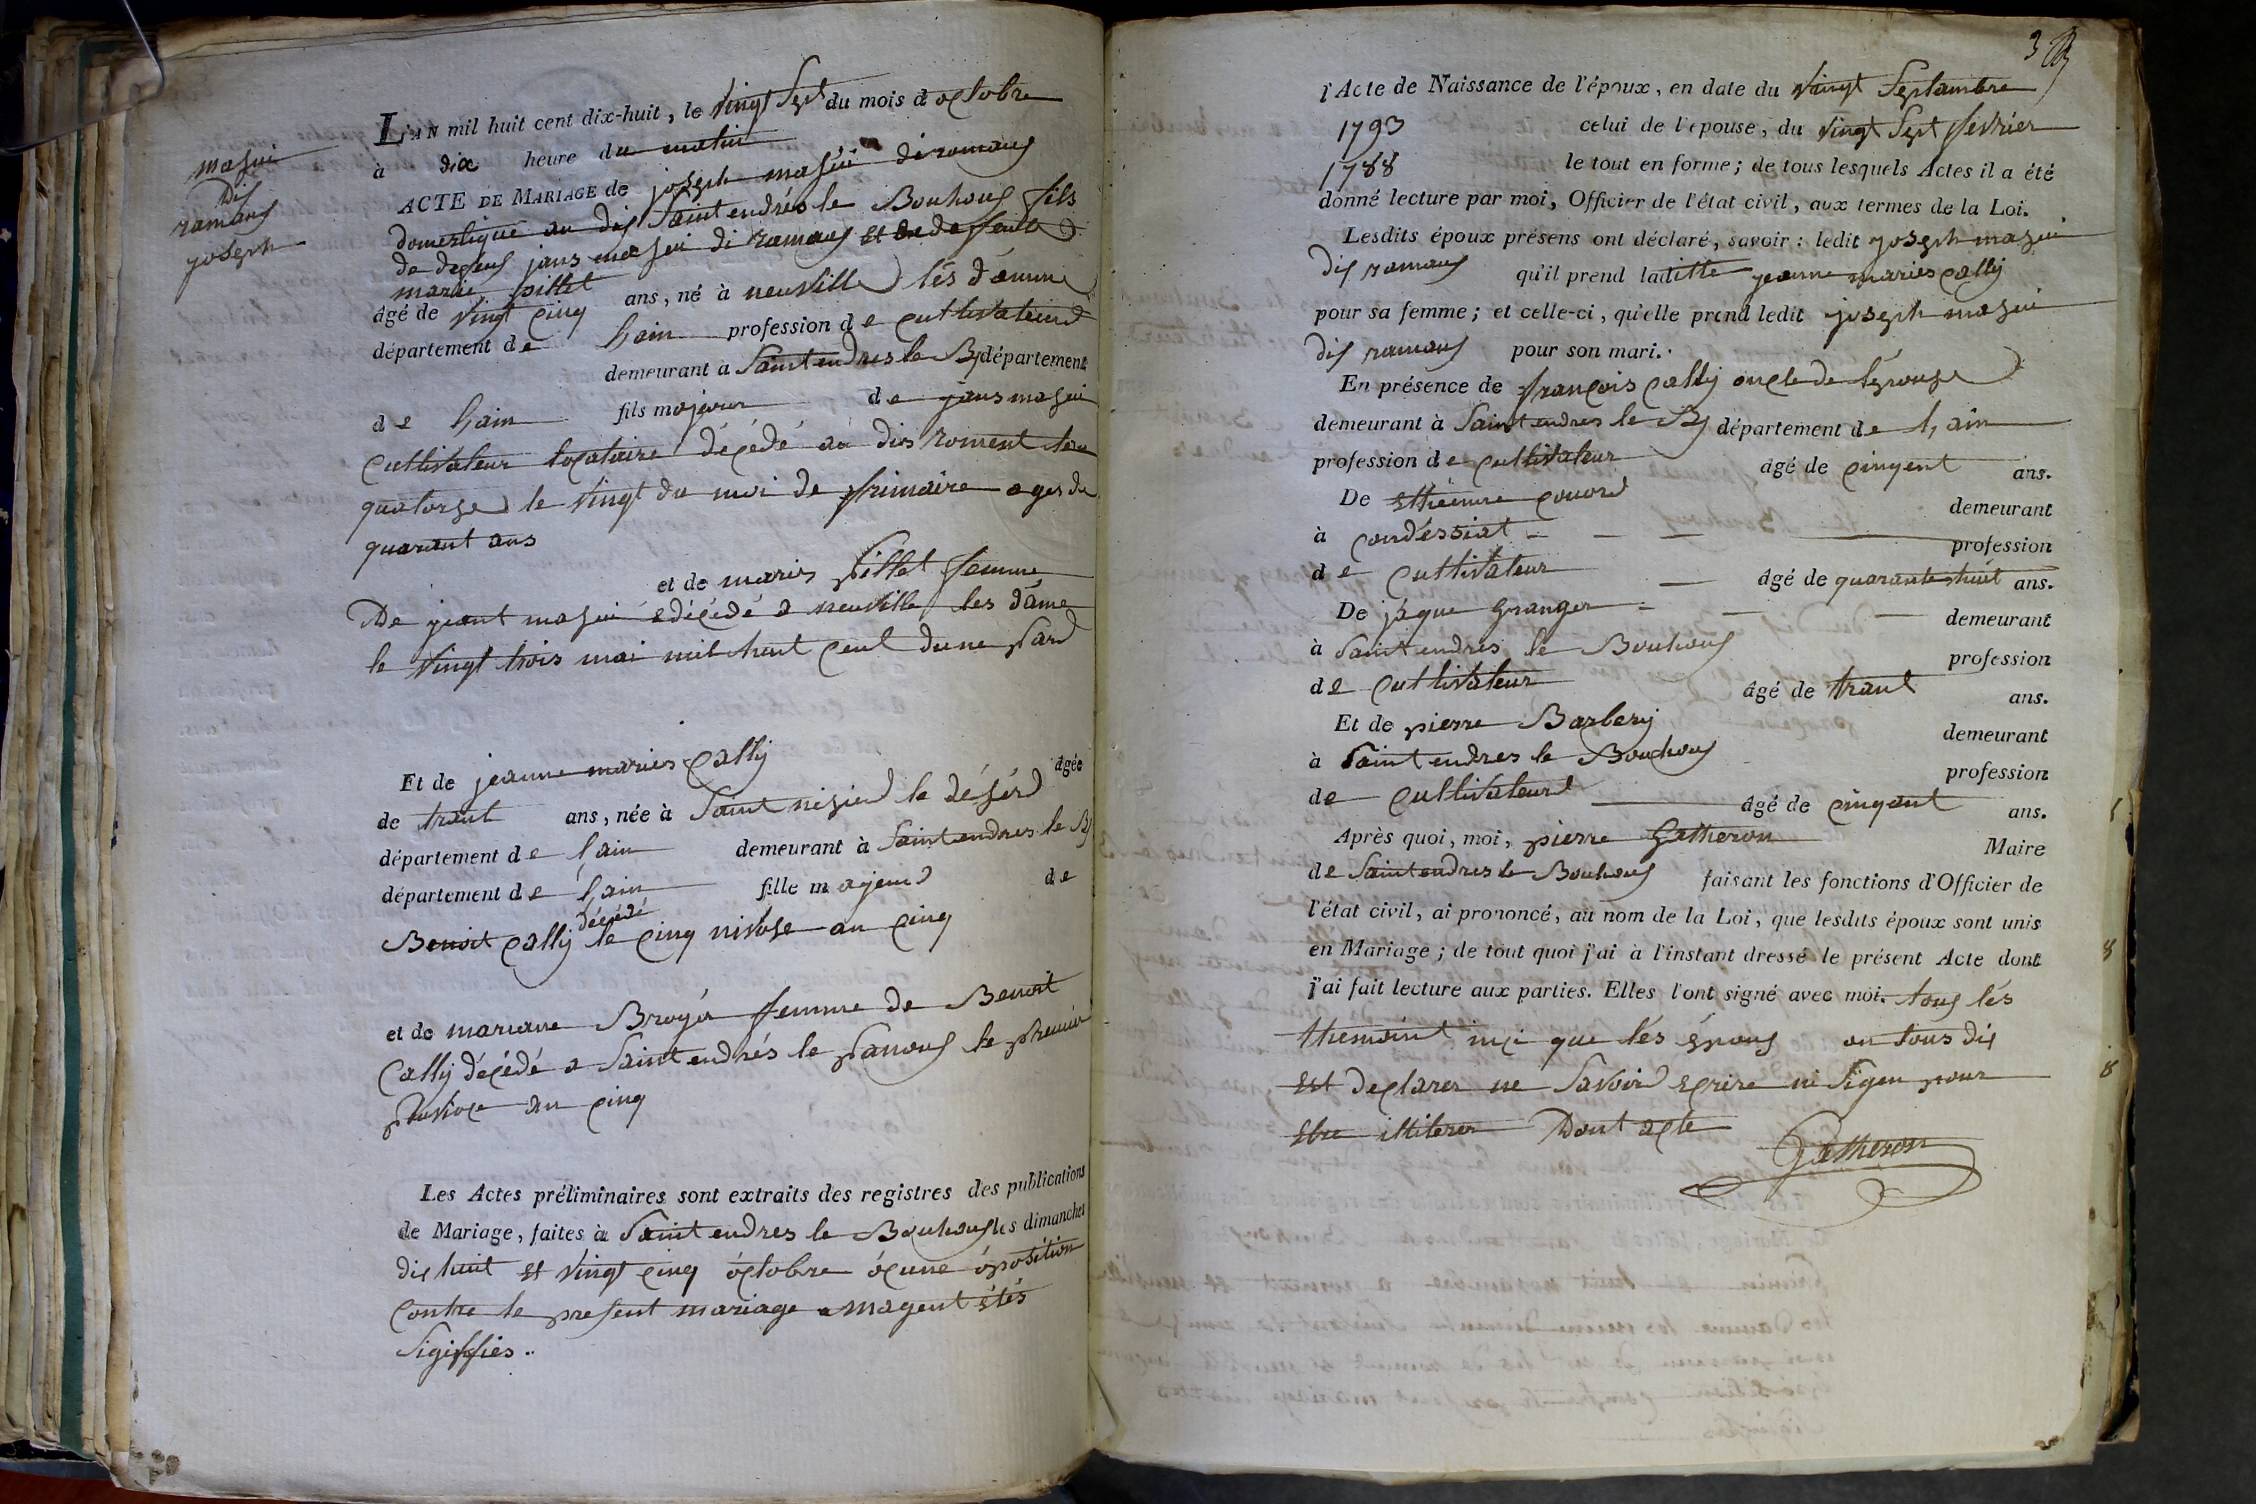 masui
dis
ramans
joseph
L'AN mil huit cent dix-huit, le vingt Sept du mois d octobre
à dix heure du matin
ACTE DE MARIAGE de joseph masui di romans
domestique au dis Saint endrés le Bouhous fils
de defeus jans masui di ramans et de defeute
marie pillet
âgé de vingt cinq ans, né à neuville lés dâmme
département de hain profession de cultivateurd
demeurant à Saint endres le By département
de hain fils majeur de jans masui
cultivateur locataire décédé au dis roment lan
quatorze le vingt du moi de frimaire ages de
quarant ans
et de maries pillet femme
De jeant masui edécédé a neuville les dâme
le vingt trois mai mil huit cent dune pard
Et de jeanne maries Cally agée
de trant ans, née à Saint nisierd le désérd
département de lain demeurant à Saint endres le By
département de lain fille majeurd de
décédé
Benoit cally le cinq nivose an cinq
et de mariane Broyér femme de Benoit
Cally décédé a Saint endrés le panous le premier
pluviose an cinq
Les Actes préliminaires sont extraits des registres des publications
de Mariage, faites à Saint endres le Bouhous les dimanches
dis huit et vingt cinq octobre ocune oposition
contre le present mariage magent étés
Sigiffiés..
3
l'Acte de Naissance de l'époux, en date du vaingt Septambre
1793 celui de l'épouse, du vingt Sept fevrier
1788 le tout en forme; de tous lesquels Actes il a été
donné lecture par moi, Officier de l'état civil, aux termes de la Loi.
Lesdits époux présens ont déclaré, savoir: ledit joseph masui
dis ramans qu'il prend laditte jeanne maries cally
pour sa femme; et celle-ci, qu'elle prend ledit joseph masui
dis ramans pour son mari.
En présence de françois cally oncle de lépouse
demeurant à Saint endres le By département de l,ain
profession de cultivateur âgé de cinqent ans.
De Ethienne couord demeurant
à condéssiat profession
de cultivateur âgé de quarante huit ans.
De jaque Granger demeurant
à Saint endrés le Bouhous profession
de cultivateur âgé de trant ans.
Et de pierre Barbery demeurant
à Saint endres le Bouhous profession
de cultivateurd âgé de cinqant ans.
Après quoi, moi, pierre Gatheron Maire
de Saint endres le Bouhous faisant les fonctions d'Officier de
l'état civil, ai prononcé, au nom de la Loi, que lesdits époux sont unis
en Mariage; de tout quoi j'ai à l'instant dressé le présent Acte dont
j'ai fait lecture aux parties. Elles l'ont signé avec moi. tous lés
themoint inci que lés époux on tous dis
Est declarer ne Savoird ecrire ni Signer pour
Etre illiterer Dont acte
Gatheron